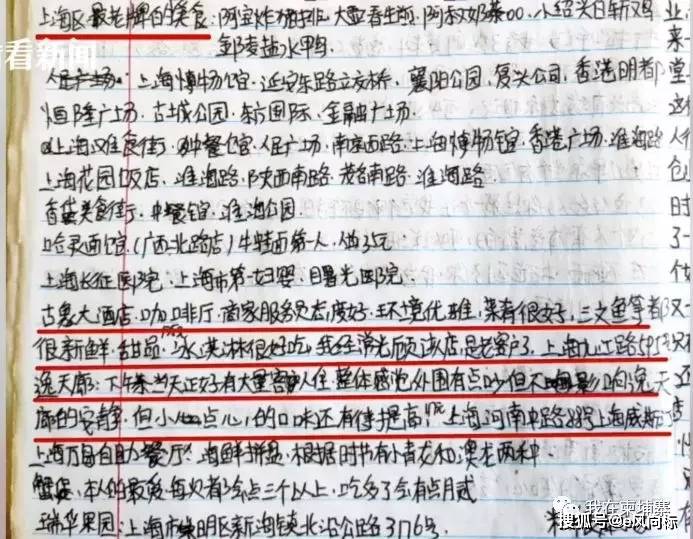 看看新闻
上海区最老牌的美食:阿宝炸猪排.大壶春生煎.阿叔奶茶00.小绍兴白斩鸡
邹凌盐水鸭
人民广场.上海博物馆.延安东路立交桥.襄阳公园.复兴公司.香港明都
恒隆广场.古城公园.东方国际.金融广场.
上海汉唯食街.种餐馆.人民广场.南京西路.上海博物馆.香港广场.淮海路
上海花园饭店.淮海路.陕西南路.茂名南路.淮海路.
香港美食街.中餐馆.淮海公园.
哈灵面馆.(广西北路店)牛特面第一人.做25元
上海长征医院.上海市第一妇婴.曙光医院.
古象大酒店.咖啡厅.商家服务员态度好.环境优雅.菜肴很好.三文鱼等都
很新鲜.甜品.冰淇淋很好吃.我经常光顾该店.是老客户了.上海九江路595
逸天廊:下午茶当天正好有大量客人住.整体感觉外围有点吵但不影响逸天
廊的安静.但小点心.的口味还有待提高.上海河南中路88号上海威斯
上海万豪自助餐厅:海鲜拼盘.根据时节有小青龙和澳龙两种
蟹庭.本人的最爱.每次都会点三个以上.吃多了会有点月贰
瑞华果园:上海市崇明区新海镇北沿公路3176号.
业
来
堂
人
仓
时
了
一
仅
店
我在柬埔寨
搜狐号@